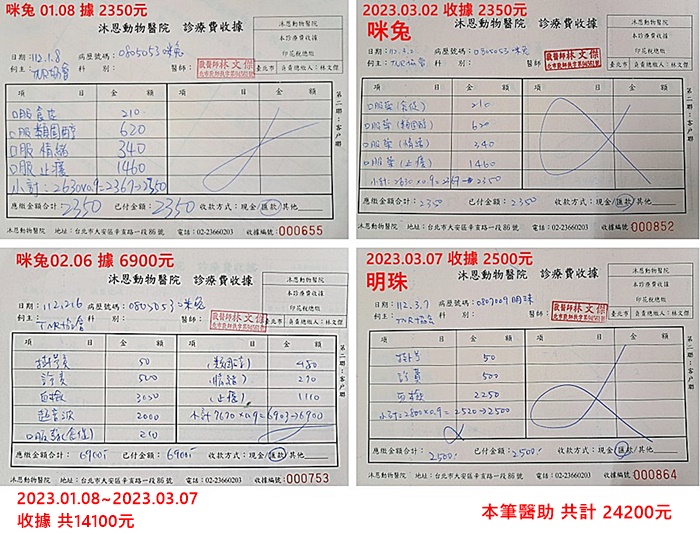 咪兔 01.08 據 2350元
沐恩動物醫院 診療費收據
沐恩動物醫院
本診療費收據
印花稅總繳
臺北市 負責總繳人：林文傑
日期：112.1.8 病歷號碼：0805053 咪兔
飼主：TNR協會 科別： 醫師：
獸醫師林文傑
項 目 金額 項 目 金額
口服食慾 210
口服類固醇 620
口服情緒 340
口服止穫 1460
小計：2630x0.9=2367→2350
應繳金額合計：2350 已付金額：2350 收款方式：現金/匯款/其他
沐恩動物醫院 地址：台北市大安區辛亥路一段86號 電話：02-23660203 收據編號：000655
第二聯：客戶聯
2023.03.02 收據 2350元
咪兔
沐恩動物醫院 診療費收據
沐恩動物醫院
本診療費收據
印花稅總繳
臺北市 負責總繳人：林文傑
日期：112.3.2 病歷號碼：0805053 咪兔
飼主：TNR協會 科別： 醫師：
獸醫師林文傑
項 目 金額 項 目 金額
口服藥(食慾) 210
口服藥(類固醇) 620
口服藥(情緒) 340
口服藥(止穫) 1460
小計：2630x0.9=2367→2350
應繳金額合計：2350 已付金額：2350 收款方式：現金/匯款/其他
沐恩動物醫院 地址：台北市大安區辛亥路一段86號 電話：02-23660203 收據編號：000852
第二聯：客戶聯
咪兔02.06 據 6900元
沐恩動物醫院 診療費收據
沐恩動物醫院
本診療費收據
印花稅總繳
臺北市 負責總繳人：林文傑
日期：112.2.6 病歷號碼：0805053 咪兔
飼主：TNR協會 科別： 醫師：
獸醫師林文傑
項 目 金額 項 目 金額
掛號費 50 (類固醇) 480
診費 500 (情緒) 270
血檢 3050 (止穫) 1110
超音波 2000 小計7670x0.9=6903→6900
口服藥(食慾) 210
應繳金額合計：6900 已付金額：6900 收款方式：現金/匯款/其他
沐恩動物醫院 地址：台北市大安區辛亥路一段86號 電話：02-23660203 收據編號：000753
第二聯：客戶聯
2023.03.07 收據 2500元
明珠
沐恩動物醫院 診療費收據
沐恩動物醫院
本診療費收據
印花稅總繳
臺北市 負責總繳人：林文傑
日期：112.3.7 病歷號碼：0807009 明珠
飼主：TNR協會 科別： 醫師：
獸醫師林文傑
項 目 金額 項 目 金額
掛號 50
診費 500
血檢 2250
小計=2800x0.9=2520→2500
應繳金額合計：2500 已付金額：2500 收款方式：現金/匯款/其他
沐恩動物醫院 地址：台北市大安區辛亥路一段86號 電話：02-23660203 收據編號：000864
第二聯：客戶聯
2023.01.08~2023.03.07
收據 共14100元
本筆醫助 共計 24200元